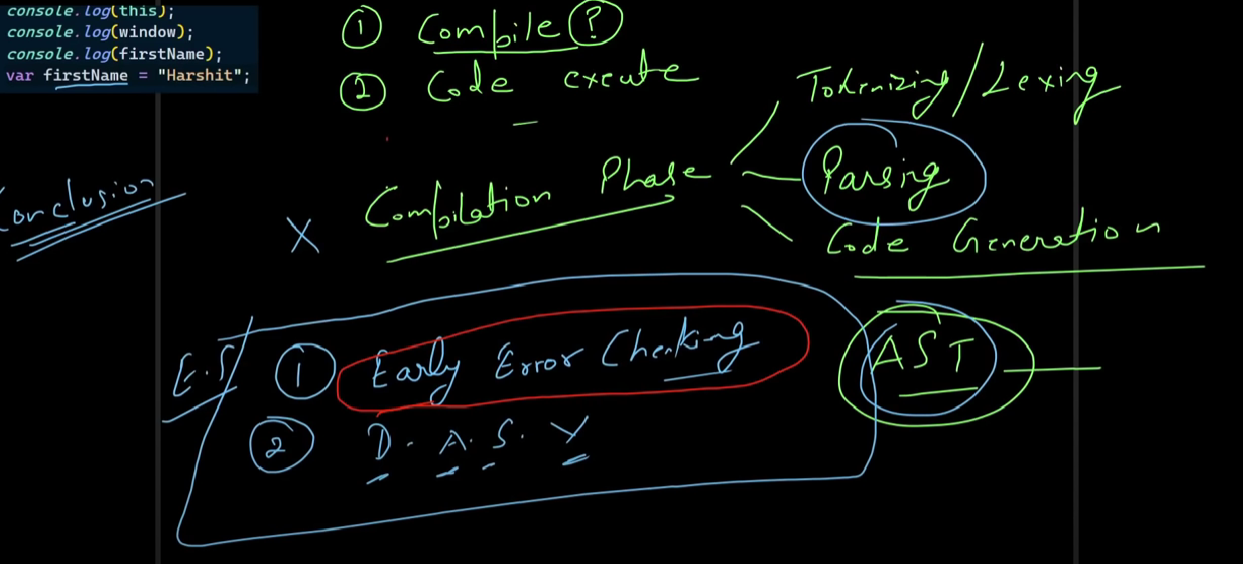 console.log(this);
console.log(window);
console.log(firstName);
var firstName = "Harshit";
① Compile ?
② Code execute
Compilation Phase
Tokenizing/Lexing
Parsing
Code Generation
Conclusion
X
E.S
① Early Error Checking
AST
② D. A. S. Y